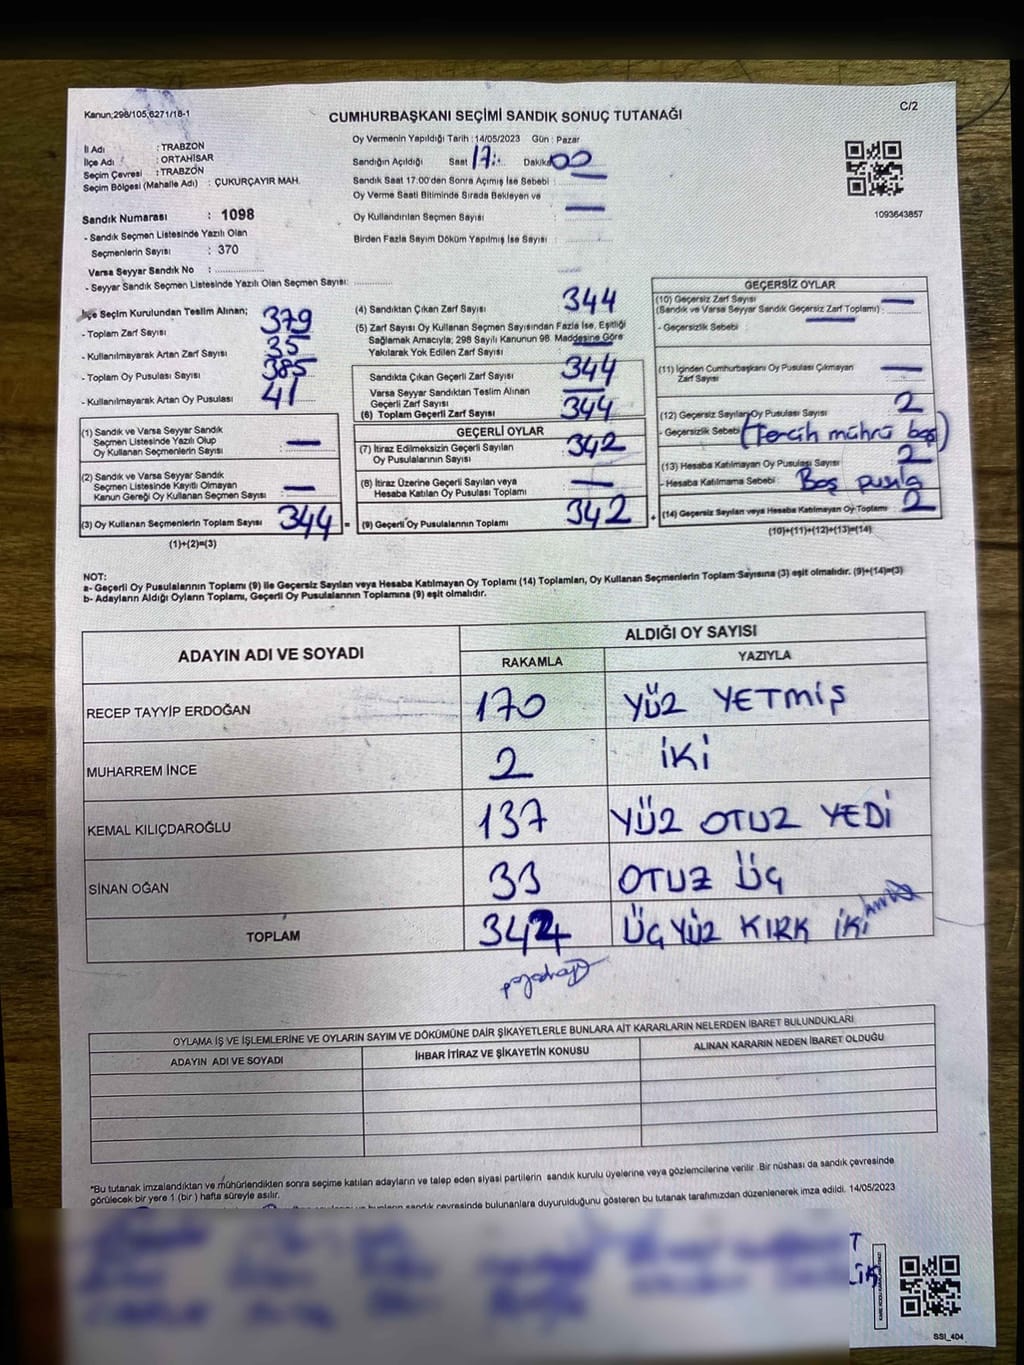 Kanun;298/105,6271/18-1
C/2
CUMHURBAŞKANI SEÇİMİ SANDIK SONUÇ TUTANAĞI
İl Adı : TRABZON
İlçe Adı : ORTAHİSAR
Seçim Çevresi : TRABZON
Seçim Bölgesi (Mahalle Adı) : ÇUKURÇAYIR MAH.
Sandık Numarası : 1098
- Sandık Seçmen Listesinde Yazılı Olan
Seçmenlerin Sayısı : 370
Varsa Seyyar Sandık No :
- Seyyar Sandık Seçmen Listesinde Yazılı Olan Seçmen Sayısı:
Oy Vermenin Yapıldığı Tarih : 14/05/2023 Gün : Pazar
Sandığın Açıldığı Saat 17:.. Dakika 00
Sandık Saat 17:00'den Sonra Açımış İse Sebebi : —
Oy Verme Saati Bitiminde Sırada Bekleyen ve
Oy Kullandırılan Seçmen Sayısı : —
Birden Fazla Sayım Döküm Yapılmış İse Sayısı :
1093643857
İlçe Seçim Kurulundan Teslim Alınan;
- Toplam Zarf Sayısı 379
- Kullanılmayarak Artan Zarf Sayısı 35
- Toplam Oy Pusulası Sayısı 385
- Kullanılmayarak Artan Oy Pusulası 41
(1) Sandık ve Varsa Seyyar Sandık
Seçmen Listesinde Yazılı Olup
Oy Kullanan Seçmenlerin Sayısı : —
(2) Sandık ve Varsa Seyyar Sandık
Seçmen Listesinde Kayıtlı Olmayan
Kanun Gereği Oy Kullanan Seçmen Sayısı : —
(3) Oy Kullanan Seçmenlerin Toplam Sayısı 344 =
(1)+(2)=(3)
(4) Sandıktan Çıkan Zarf Sayısı 344
(5) Zarf Sayısı Oy Kullanan Seçmen Sayısından Fazla İse, Eşitliği
Sağlamak Amacıyla, 298 Sayılı Kanunun 98. Maddesine Göre
Yakılarak Yok Edilen Zarf Sayısı : —
Sandıkta Çıkan Geçerli Zarf Sayısı 344
Varsa Seyyar Sandıktan Teslim Alınan
Geçerli Zarf Sayısı —
(6) Toplam Geçerli Zarf Sayısı 344
GEÇERLİ OYLAR
(7) İtiraz Edilmeksizin Geçerli Sayılan
Oy Pusulalarının Sayısı 342
(8) İtiraz Üzerine Geçerli Sayılan veya
Hesaba Katılan Oy Pusulası Toplamı —
(9) Geçerli Oy Pusulalarının Toplamı 342 +
GEÇERSİZ OYLAR
(10) Geçersiz Zarf Sayısı —
(Sandık ve Varsa Seyyar Sandık Geçersiz Zarf Toplamı) :
- Geçersizlik Sebebi —
(11) İçinden Cumhurbaşkanı Oy Pusulası Çıkmayan
Zarf Sayısı —
(12) Geçersiz Sayılan Oy Pusulası Sayısı 2
- Geçersizlik Sebebi (Tercih mührü boş)
(13) Hesaba Katılmayan Oy Pusulası Sayısı 2
- Hesaba Katılmama Sebebi : Boş pusula
(14) Geçersiz Sayılan veya Hesaba Katılmayan Oy Toplamı 2
(10)+(11)+(12)+(13)=(14)
NOT:
a- Geçerli Oy Pusulalarının Toplamı (9) ile Geçersiz Sayılan veya Hesaba Katılmayan Oy Toplamı (14) Toplamları, Oy Kullanan Seçmenlerin Toplam Sayısına (3) eşit olmalıdır. (9)+(14)=(3)
b- Adayların Aldığı Oyların Toplamı, Geçerli Oy Pusulalarının Toplamına (9) eşit olmalıdır.
ADAYIN ADI VE SOYADI
ALDIĞI OY SAYISI
RAKAMLA YAZIYLA
RECEP TAYYİP ERDOĞAN 170 YÜZ YETMİŞ
MUHARREM İNCE 2 İKİ
KEMAL KILIÇDAROĞLU 137 YÜZ OTUZ YEDİ
SİNAN OĞAN 33 OTUZ ÜÇ
TOPLAM 342 ÜÇ YÜZ KIRK İKİ
OYLAMA İŞ VE İŞLEMLERİNE VE OYLARIN SAYIM VE DÖKÜMÜNE DAİR ŞİKAYETLERLE BUNLARA AİT KARARLARIN NELERDEN İBARET BULUNDUKLARI
ADAYIN ADI VE SOYADI İHBAR İTİRAZ VE ŞİKAYETİN KONUSU ALINAN KARARIN NEDEN İBARET OLDUĞU
*Bu tutanak imzalandıktan ve mühürlendikten sonra seçime katılan adayların ve talep eden siyasi partilerin sandık kurulu üyelerine veya gözlemcilerine verilir .Bir nüshası da sandık çevresinde
görülecek bir yere 1 (bir ) hafta süreyle asılır.
bulunanlara duyurulduğunu gösteren bu tutanak tarafımızdan düzenlenerek imza edildi. 14/05/2023
SSI_404